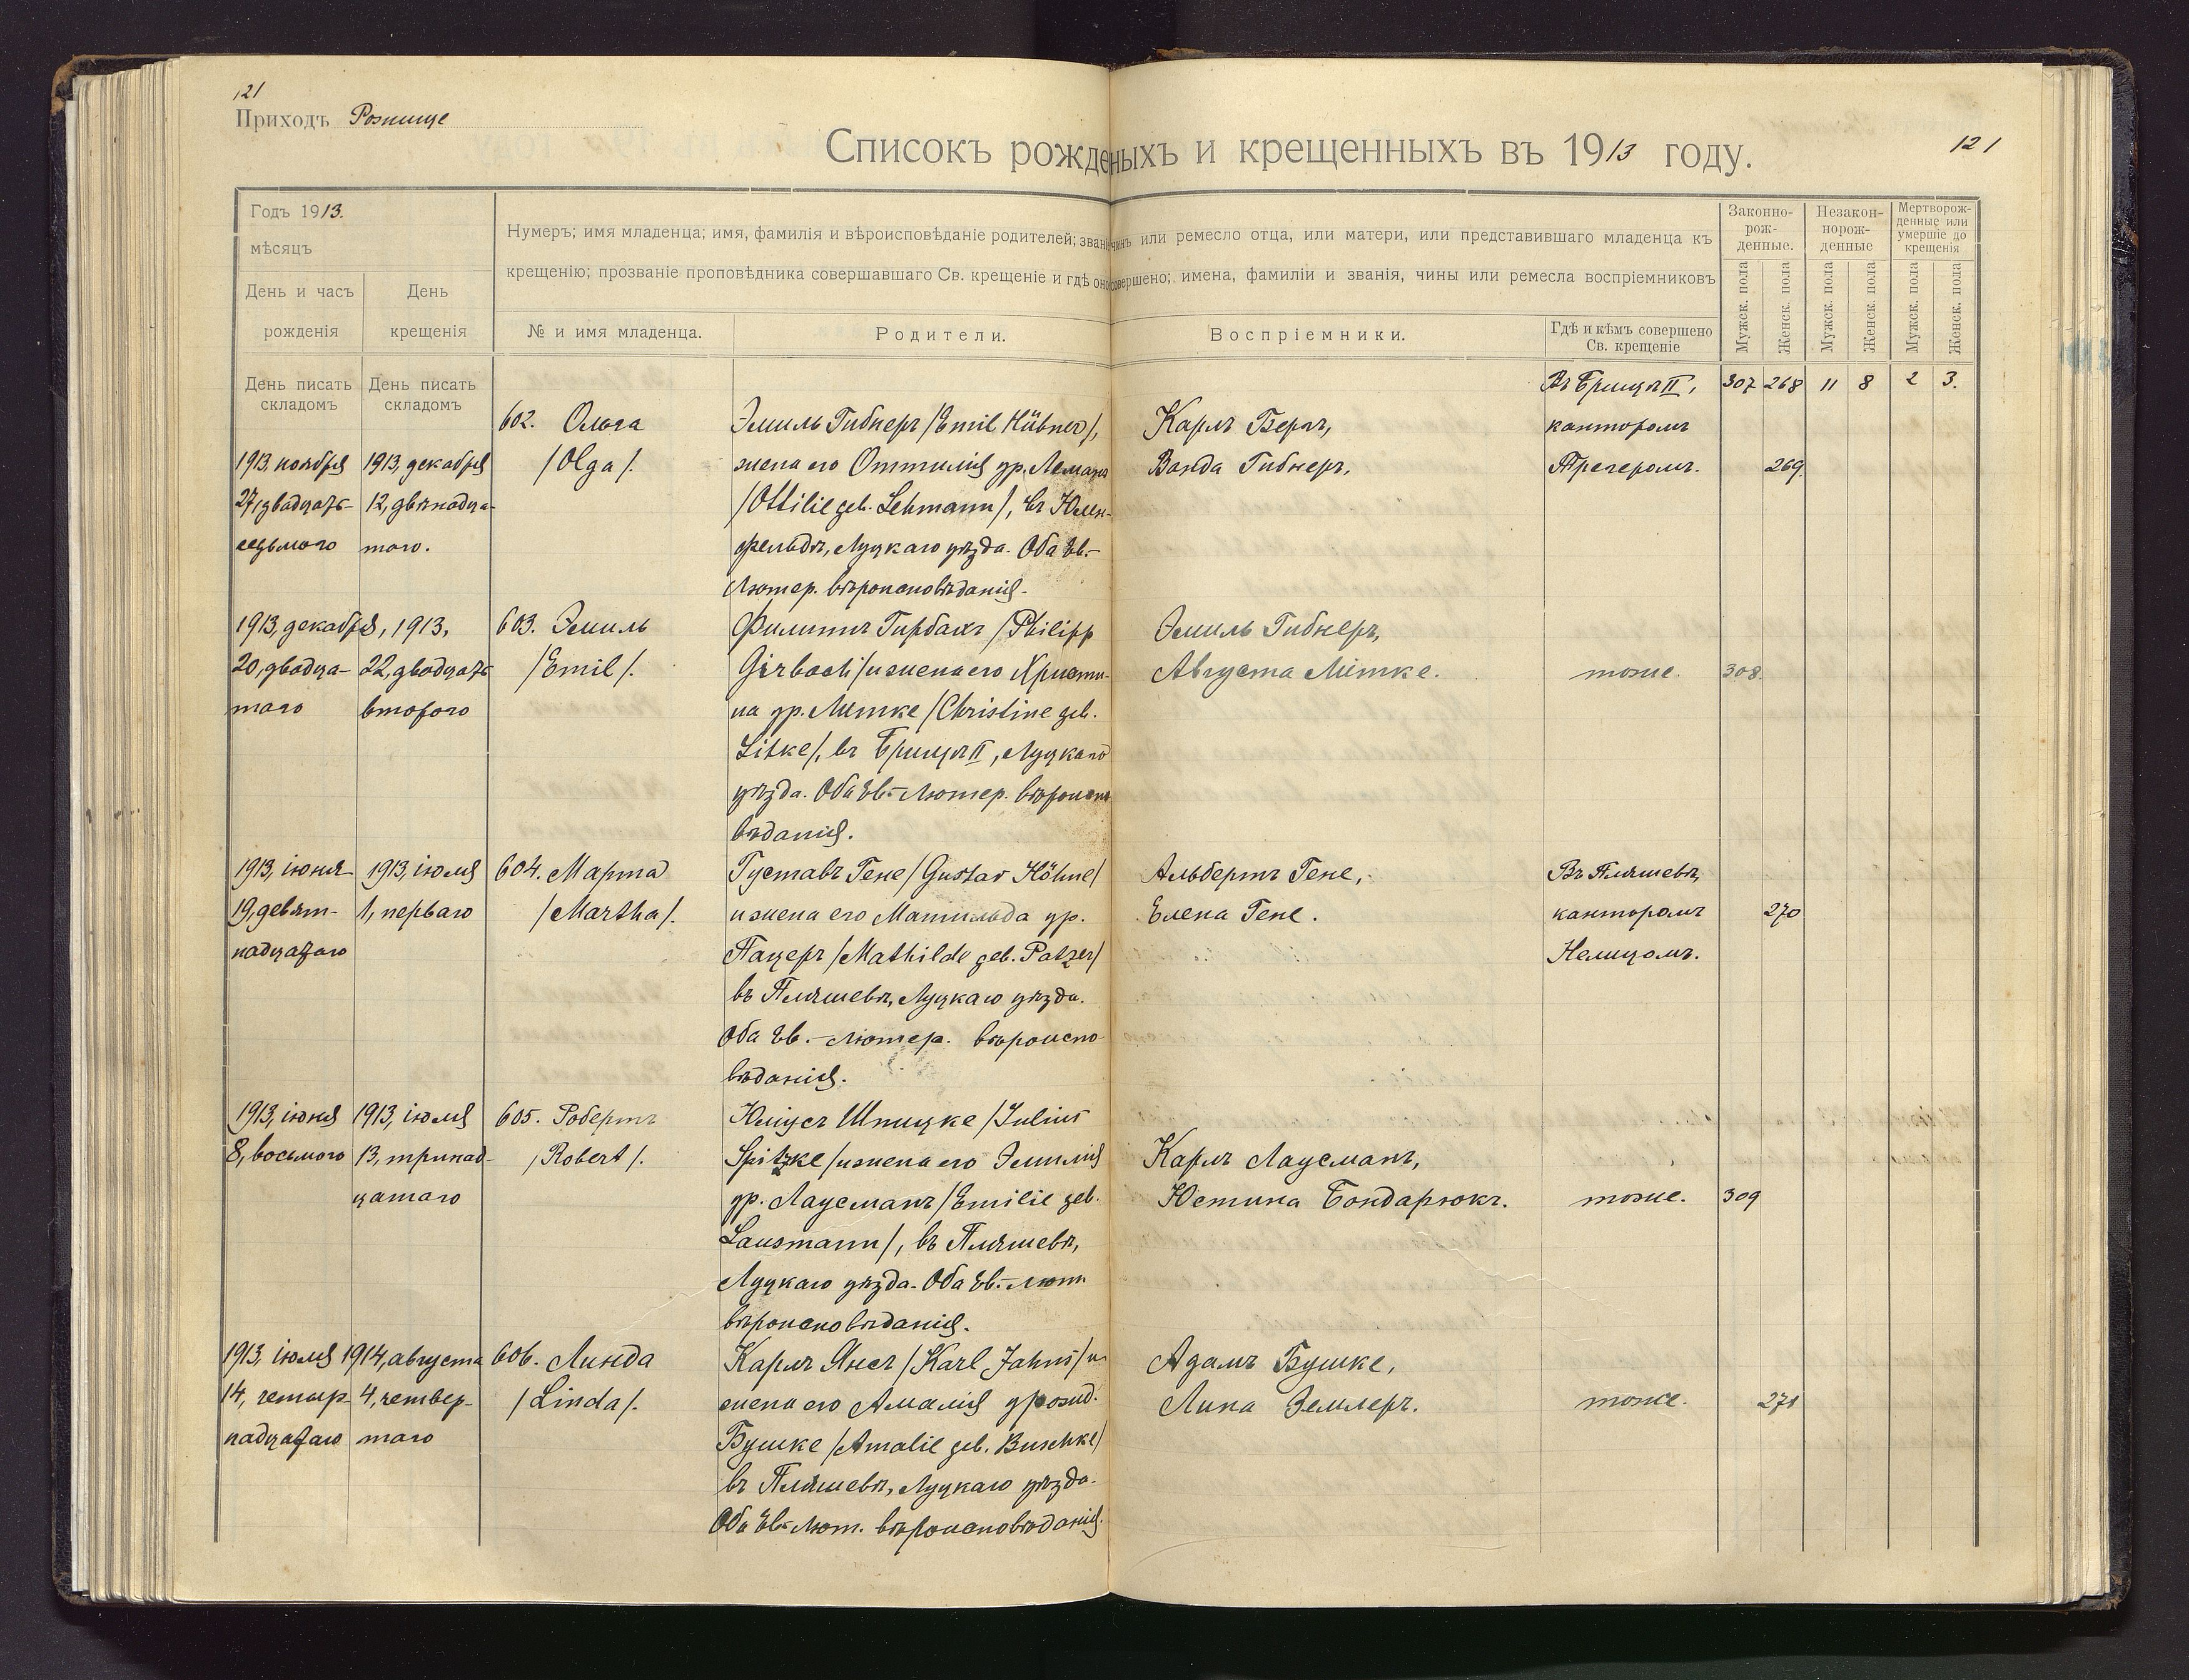 121
Приходъ Рожище
Списокъ рожденыхъ и крещенныхъ въ 1913 году.
121
Годъ 1913.
мѣсяцъ
День и часъ рожденія
День крещенія
Нумеръ; имя младенца; имя, фамилія и вѣроисповѣданіе родителей; званіе чинъ или ремесло отца, или матери, или представившаго младенца къ
крещенію; прозваніе проповѣдника совершавшаго Св. крещеніе и гдѣ оно совершено; имена, фамиліи и званія, чины или ремесла воспріемниковъ
№ и имя младенца.
Родители.
Воспріемники.
Гдѣ и кѣмъ совершено
Св. крещеніе
Законно-
рож-
денные.
Незакон-
норож-
денные
Мертворож-
денные или
умершіе до
крещенія
Мужск. пола
Женск. пола
Мужск. пола
Женск. пола
Мужск. пола
Женск. пола
День писать
складомъ
День писать
складомъ
307 268 11 8 2 3.
1913, ноября
27, двадцать-
седьмого
1913, декабря
12, двѣнадца-
того.
602. Ольга
/Olga/.
Эмиль Гибнеръ /Emil Hübner/,
жена его Оттилія ур. Леманъ
/Ottilie geb. Lehmann/, въ Юлен-
фельдѣ, Луцкаго уѣзда. Оба Ев.-
Лютер. вѣроисповѣданія.
Карлъ Берлъ,
Ванда Гибнеръ.
Въ Брищѣ II,
канторомъ
Трегеромъ.
269
1913, декабря
20, двадца-
таго
, 1913,
22, двадцать
второго
603. Эмиль
/Emil/.
Филиппъ Гирбахъ /Philipp
Girbach/ и жена его Христи-
на ур. Литке /Christine geb.
Litke/, въ Брищѣ II, Луцкаго
уѣзда. Оба Ев.-Лютер. вѣроиспо
вѣданія.
Эмиль Гибнеръ,
Августа Литке.
тоже.
308.
1913, іюня
19, девят-
надцатаго
1913, іюля
1, перваго
604. Марта
/Martha/.
Густавъ Гене /Gustav Höhne/
и жена его Матильда ур.
Пацеръ /Mathilde geb. Patzer/
въ Пляшевѣ, Луцкаго уѣзда.
Оба Ев.-Лютер. вѣроиспо
вѣданія.
Альбертъ Гене,
Елена Гене.
Въ Пляшевѣ,
канторомъ
270
1913, іюня
8, восьмого
1913, іюля
13, тринад-
цатаго
605. Робертъ
/Robert/.
Юліусъ Шпицке /Julius
Spitzke/ и жена его Эмилія
ур. Лаусманъ /Emilie geb.
Lausmann/, въ Пляшевѣ,
Луцкаго уѣзда. Оба Ев.-Лют
вѣроисповѣданія.
Карлъ Лаусманъ,
Юстина Бондарюкъ.
тоже.
309
1913, іюля
14, четыр-
надцатаго
1914, августа
4, четвер-
таго
606. Линда
/Linda/.
Карлъ Янсъ /Karl Jahns/ и
жена его Амалія урожд.
Бушке /Amalie geb. Buschke/
въ Пляшевѣ, Луцкаго уѣзда.
Оба Ев.-Лют. вѣроисповѣданія.
Адамъ Бушке,
Лина Землеръ.
тоже.
271